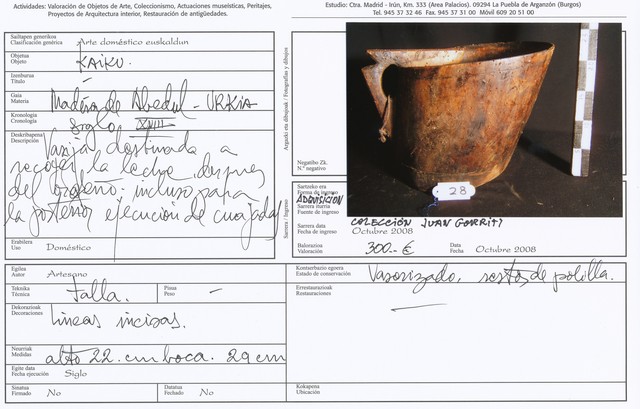 Actividades: Valoración de Objetos de Arte, Coleccionismo, Actuaciones museísticas, Peritajes,
Proyectos de Arquitectura interior, Restauración de antigüedades.
Estudio: Ctra. Madrid - Irún, Km. 333 (Area Palacios). 09294 La Puebla de Arganzón (Burgos)
Tel. 945 37 32 46 Fax. 945 37 31 00 Móvil 609 20 51 00
Sailtapen generikoa
Clasificación genérica
Arte doméstico euskaldun
Objetua
Objeto
KAIKU.
Izenburua
Título
Gaia
Materia
Madera de Abedul - URKIA
Kronologia
Cronología
Siglo XVIII
Deskribapena
Descripción
Vasija destinada a
recoger la leche después
del ordeño - incluso para
la posterior ejecución de cuajadas
Erabilera
Uso
Doméstico
Argazki eta dibujoak / Fotografías y dibujos
Negatibo Zk.
N.º negativo
28
Sarrera / Ingreso
Sartzeko era
Forma de ingreso
ADQUISICIÓN
Sarrera iturria
Fuente de ingreso
COLECCIÓN JUAN GORRITI
Sarrera data
Fecha de ingreso
Octubre 2008
Balorazioa
Valoración
300.- €
Data
Fecha
Octubre 2008
Egilea
Autor
Artesano
Teknika
Técnica
Talla.
Pisua
Peso
-
Dekorazioak
Decoraciones
Líneas incisas.
Neurriak
Medidas
alto 22. cm boca. 29 cm
Egite data
Fecha ejecución
Siglo
Sinatua
Firmado
No
Datatua
Fechado
No
Kontserbazio egoera
Estado de conservación
Vaporizado, restos de polilla.
Errestaurazioak
Restauraciones
Kokapena
Ubicación